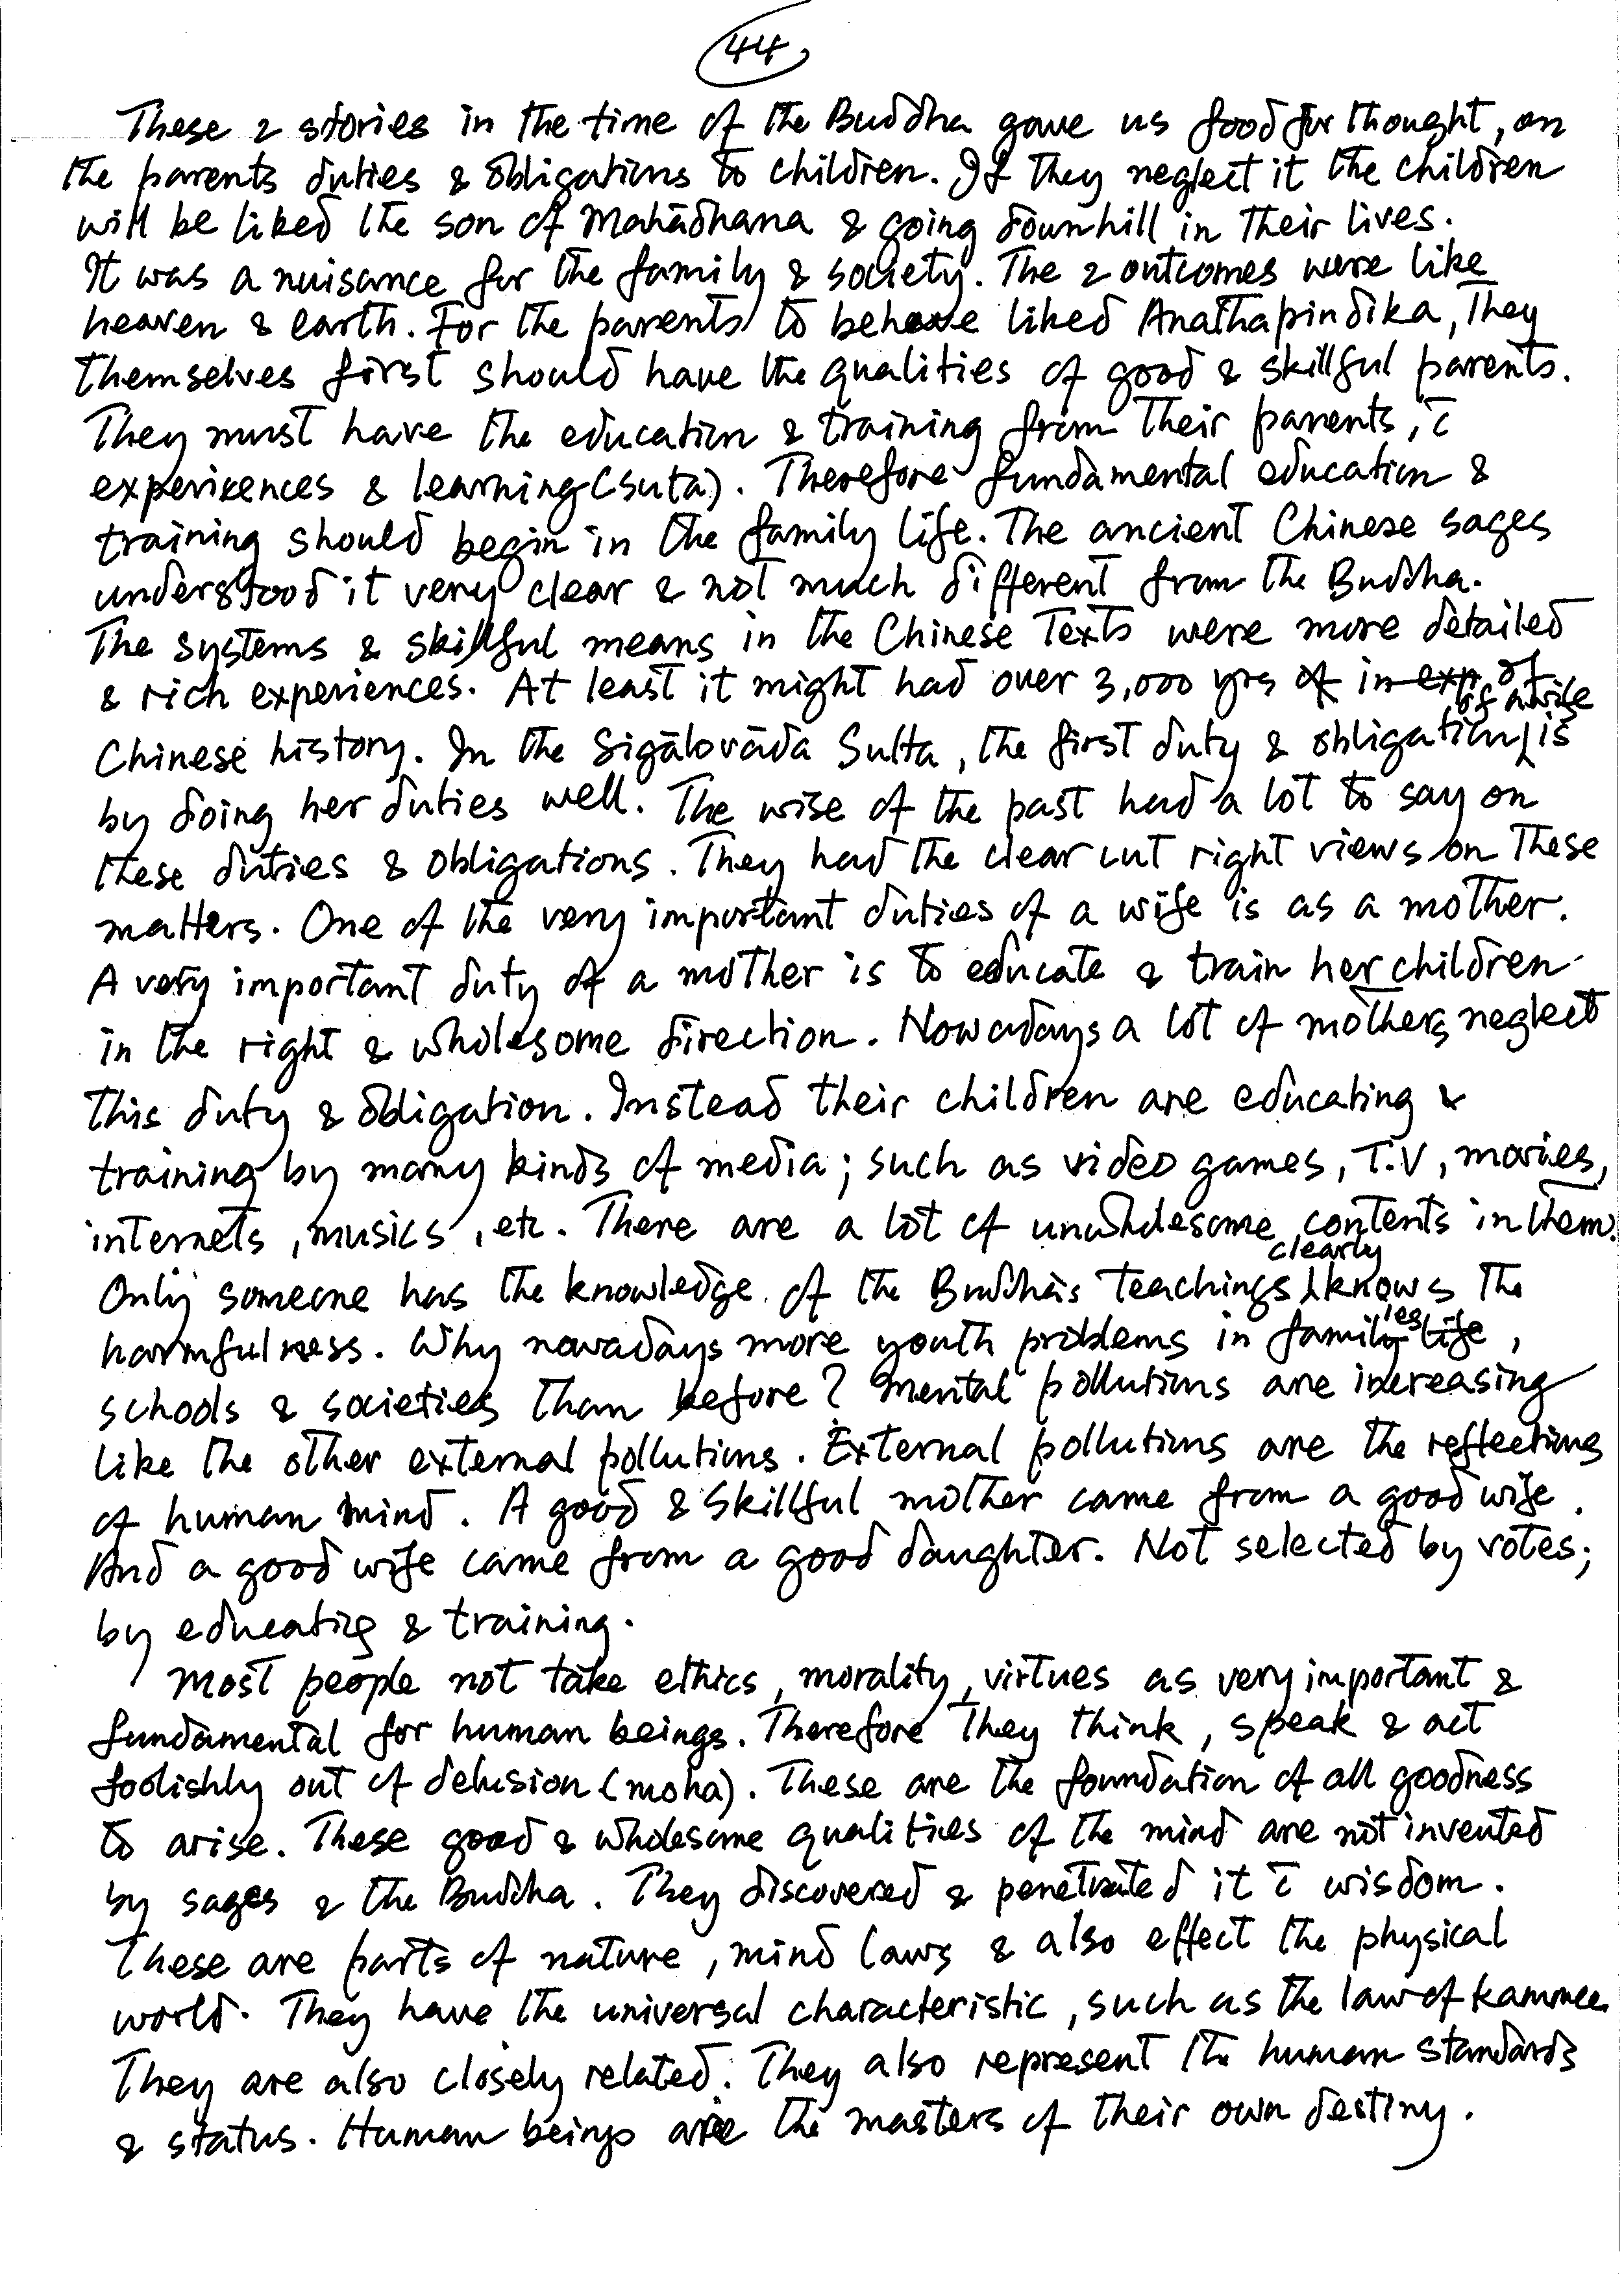 44
These 2 stories in the time of the Buddha gave us food for thought, on
the parents duties & obligations to children. If they neglect it the children
will be liked the son of Mahādhana & going downhill in their lives.
It was a nuisance for the family & society. The 2 outcomes were like
heaven & earth. For the parents to behave liked Anathapindika, they
themselves first should have the qualities of good & skillful parents.
They must have the education & training from their parents, c̄
experiences & learning (suta). Therefore fundamental education &
training should begin in the family life. The ancient Chinese sages
understood it very clear & not much different from the Buddha.
The systems & skillful means in the Chinese Texts were more detailed
& rich experiences. At least it might had over 3,000 yrs of in exp of
Chinese history. In the Sigālovāda Sutta, the first duty & obligation of a wife is
by doing her duties well. The wise of the past had a lot to say on
these duties & obligations. They had the clear cut right views on these
matters. One of the very important duties of a wife is as a mother.
A very important duty of a mother is to educate & train her children
in the right & wholesome direction. Nowadays a lot of mothers neglect
this duty & obligation. Instead their children are educating &
training by many kinds of media; such as video games, T.V, movies,
internets, musics, etc. There are a lot of unwholesome contents in them.
Only someone has the knowledge of the Buddha's teachings clearly knows the
harmfulness. Why nowadays more youth problems in families life,
schools & societies than before? Mental pollutions are increasing
like the other external pollutions. External pollutions are the reflections
of human mind. A good & skillful mother came from a good wife.
And a good wife came from a good daughter. Not selected by votes;
by educating & training.
Most people not take ethics, morality, virtues as very important &
fundamental for human beings. Therefore they think, speak & act
foolishly out of delusion (moha). These are the foundation of all goodness
to arise. These good & wholesome qualities of the mind are not invented
by sages & the Buddha. They discovered & penetrated it c̄ wisdom.
These are parts of nature, mind laws & also effect the physical
world. They have the universal characteristic, such as the law of kamma.
They are also closely related. They also represent the human standards
& status. Human beings are the masters of their own destiny.